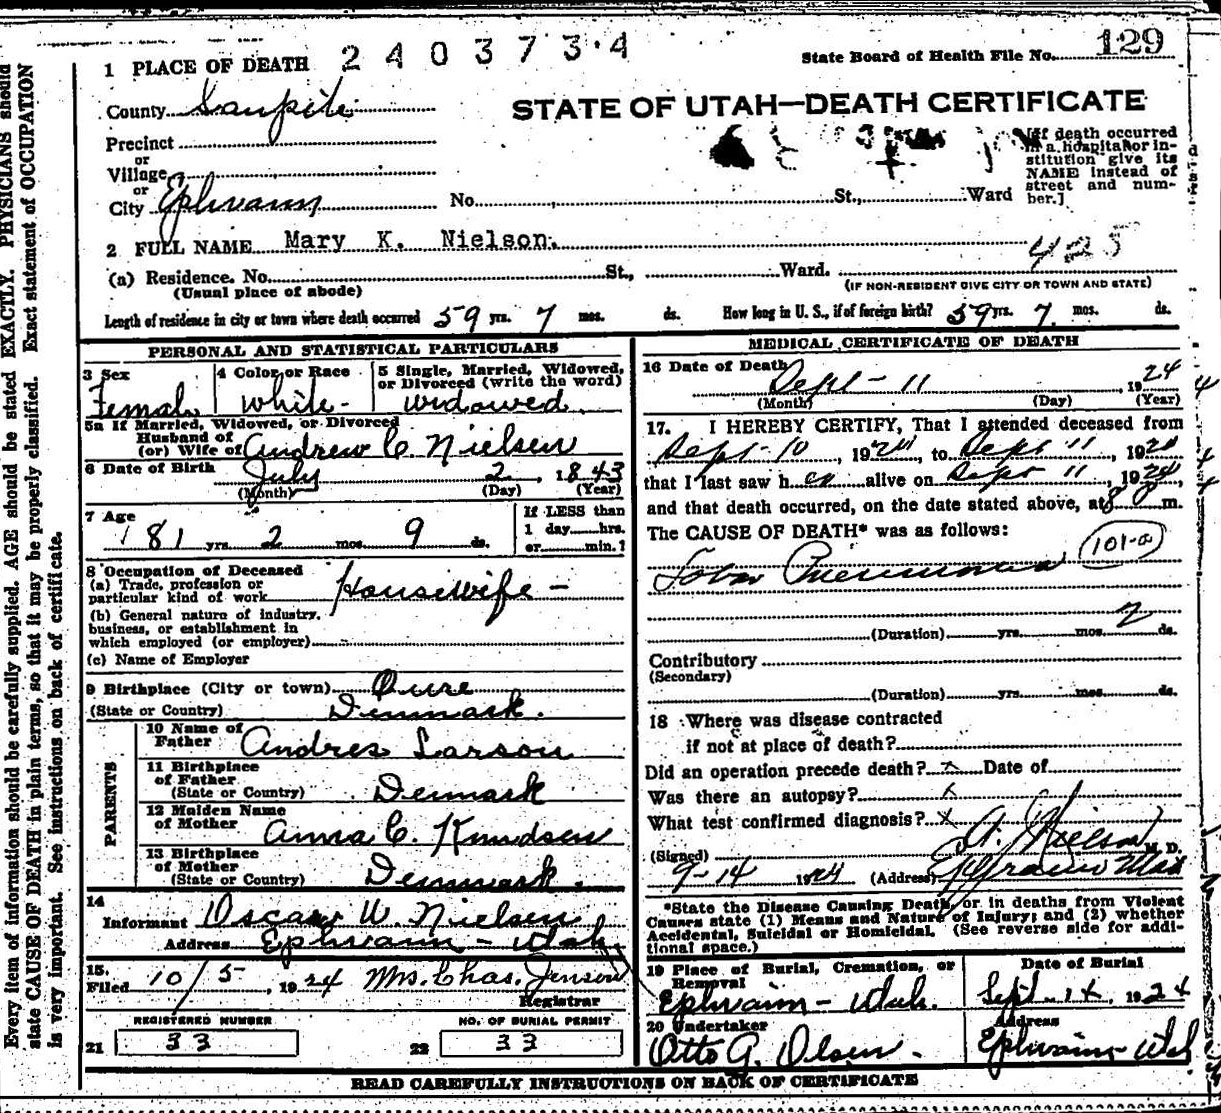 1 PLACE OF DEATH 2403734
State Board of Health File No. 129
County Sanpete
STATE OF UTAH—DEATH CERTIFICATE
Precinct
or
Village
or
City Ephraim No. St., Ward
[If death occurred in a hospital or institution give its NAME instead of street and number.]
2 FULL NAME Mary K. Nielson.
425
(a) Residence. No. St., Ward.
(Usual place of abode) (IF NON-RESIDENT GIVE CITY OR TOWN AND STATE)
Length of residence in city or town where death occurred 59 yrs. 7 mos. ds. How long in U. S., if of foreign birth? 59 yrs. 7 mos. ds.
PERSONAL AND STATISTICAL PARTICULARS
3 Sex Female
4 Color or Race White-
5 Single, Married, Widowed, or Divorced (write the word) widowed
5a If Married, Widowed, or Divorced
Husband of
(or) Wife of Andrew C. Nielsen
6 Date of Birth July 2, 1843
(Month) (Day) (Year)
7 Age 81 yrs. 2 mos. 9 ds.
If LESS than
1 day hrs.
or min.?
8 Occupation of Deceased
(a) Trade, profession or
particular kind of work Housewife -
(b) General nature of industry,
business, or establishment in
which employed (or employer)
(c) Name of Employer
9 Birthplace (City or town)
(State or Country) Denmark.
PARENTS
10 Name of
Father Andres Larson
11 Birthplace
of Father
(State or Country) Denmark
12 Maiden Name
of Mother Anna C. Knudsen
13 Birthplace
of Mother
(State or Country) Denmark.
14
Informant Oscar W. Nielsen
Address Ephraim - Utah
15.
Filed 10/5, 1924 Mrs. Chas. Jenson
Registrar
REGISTERED NUMBER
21 33
NO. OF BURIAL PERMIT
22 33
MEDICAL CERTIFICATE OF DEATH
16 Date of Death Sept - 11 1924
(Month) (Day) (Year)
17. I HEREBY CERTIFY, That I attended deceased from
Sept - 10, 1924, to Sept 11, 1924
that I last saw her alive on Sept 11, 1924,
and that death occurred, on the date stated above, at 8 P m.
The CAUSE OF DEATH* was as follows:
Lobar Pneumonia (101-a)
(Duration) yrs. mos. 2 ds.
Contributory
(Secondary)
(Duration) yrs. mos. ds.
18 Where was disease contracted
if not at place of death?
Did an operation precede death? x Date of
Was there an autopsy? x
What test confirmed diagnosis? x
(Signed) A. Nielson M. D.
9-14 1924 (Address) Ephraim Utah
*State the Disease Causing Death, or in deaths from Violent
Causes state (1) Means and Nature of Injury; and (2) whether
Accidental, Suicidal or Homicidal. (See reverse side for addi-
tional space.)
19 Place of Burial, Cremation, or
Removal
Ephraim - Utah.
Date of Burial
Sept - 14, 1924
20 Undertaker
Otto G. Olsen.
Address
Ephraim - Utah
READ CAREFULLY INSTRUCTIONS ON BACK OF CERTIFICATE
Every item of information should be carefully supplied. AGE should be stated EXACTLY. PHYSICIANS should
state CAUSE OF DEATH in plain terms, so that it may be properly classified. Exact statement of OCCUPATION
is very important. See instructions on back of certificate.